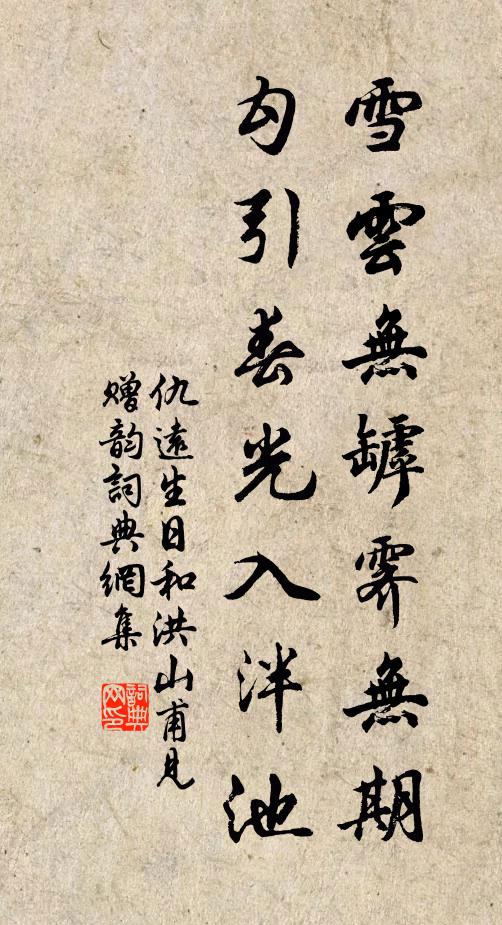 雪雲無罅霽無期
勾引春光入泮池
仇遠生日和洪山甫見
贈韵詞典網集
詞典网印